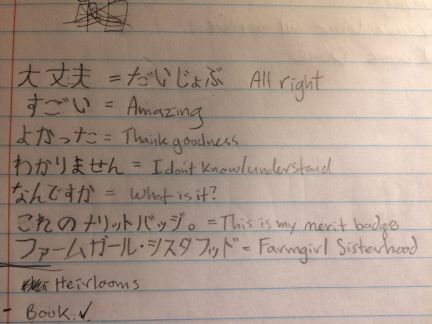 大丈夫 = だいじょぶ All right
すごい = Amazing
よかった = Thank goodness
わかりません = I don't know/understand
なんですか = What is it?
これのメリットバッジ。= This is my merit badge
ファームガール・シスタフッド = Farmgirl Sisterhood
Heirlooms
- Book ✓